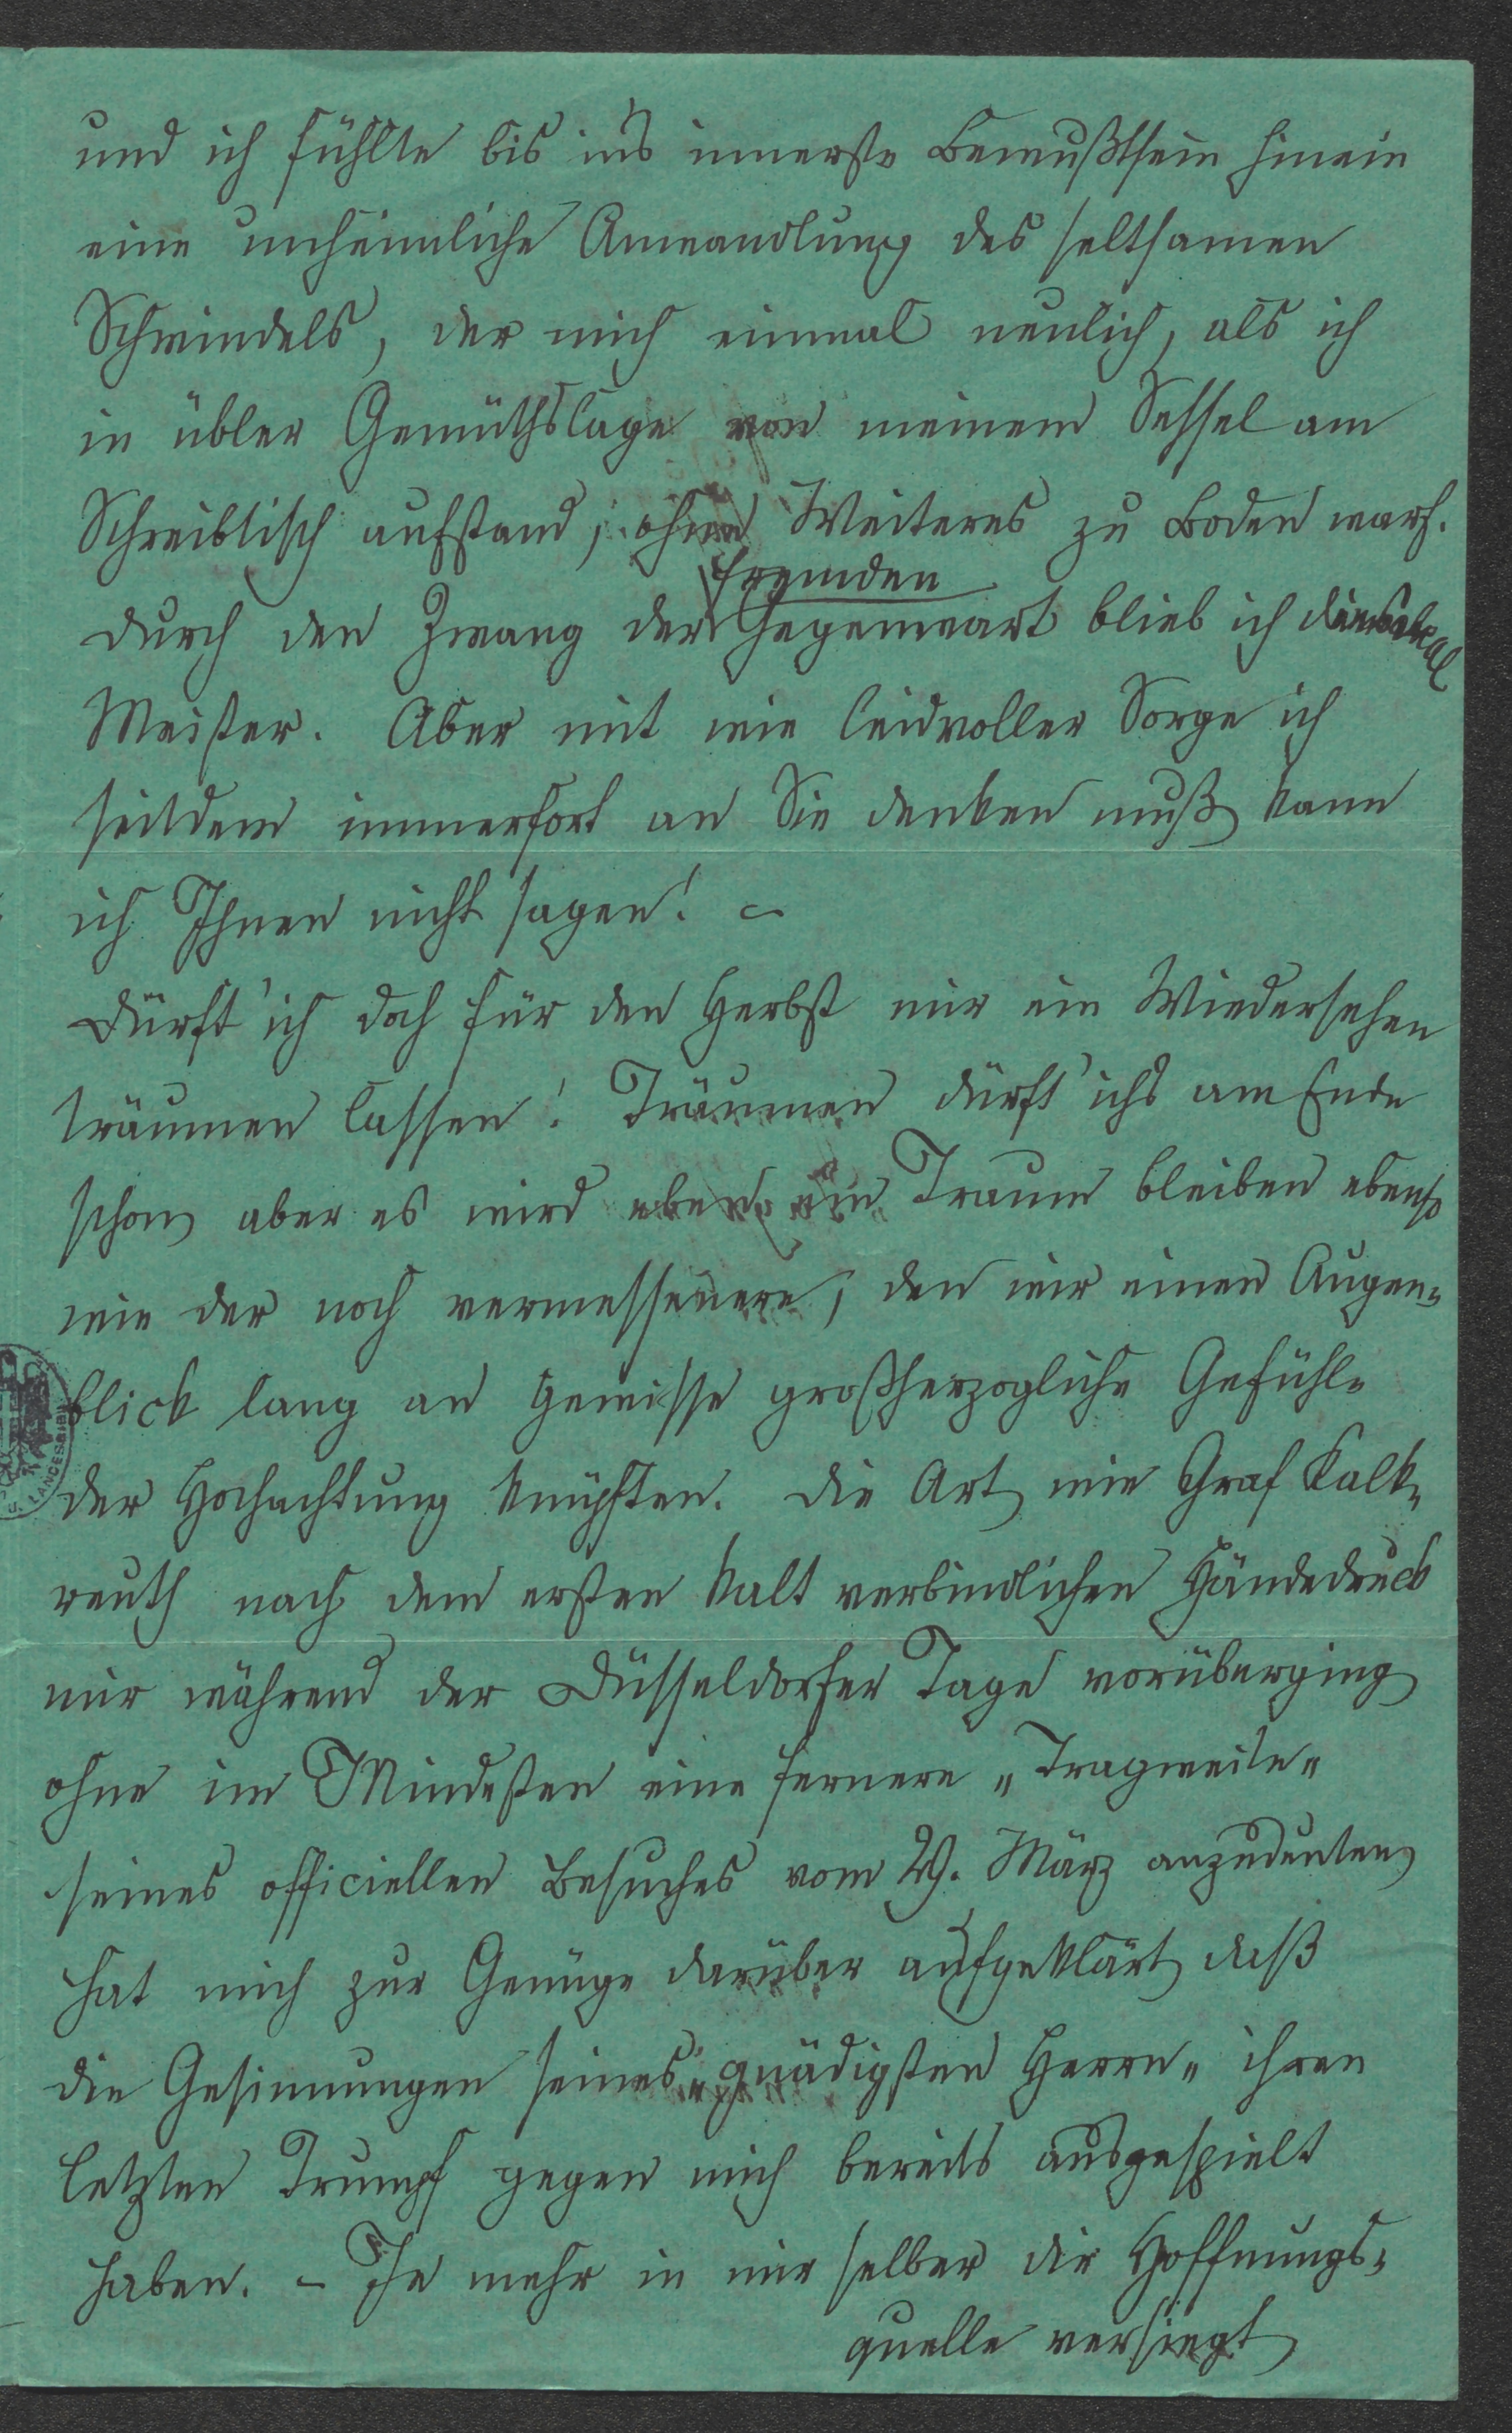 und ich fühlte bis in's innerste Bewußtsein hinein
eine unheimliche Anwandlung des seltsamen
Schwindels, der mich einmal neulich, als ich
in übler Gemüthslage von meinem Sessel am
Schreibtisch aufstand, ohne Weiteres zu Boden warf.
fremden
Durch den Zwang der Gegenwart blieb ich diesmal
Meister. Aber mit wie leidvoller Sorge ich
seitdem immerfort an Sie denken muß kann
ich Ihnen nicht sagen! –
Dürft' ich doch für den Herbst mir ein Wiedersehen
träumen lassen! Träumen dürft' ichs am Ende
schon, aber es wird eben ein Traum bleiben ebenso
wie der noch vermessenere, den wir einen Augen-
blick lang an gewisse großherzogliche Gefühle
der Hochachtung knüpften. Die Art, wie Graf Kalk-
reuth nach dem ersten kalt verbindlichen Händedruck
mir während der Düsseldorfer Tage vorüberging
ohne im Mindesten eine fernere „Tragweite"
seines officiellen Besuches vom 29. März anzudeuten,
hat mich zur Genüge darüber aufgeklärt, daß
die Gesinnungen seines „gnädigsten Herrn" ihren
letzten Trumpf gegen mich bereits ausgespielt
haben. – Je mehr in mir selber die Hoffnungs-
quelle versiegt,
U. LANDESBIB